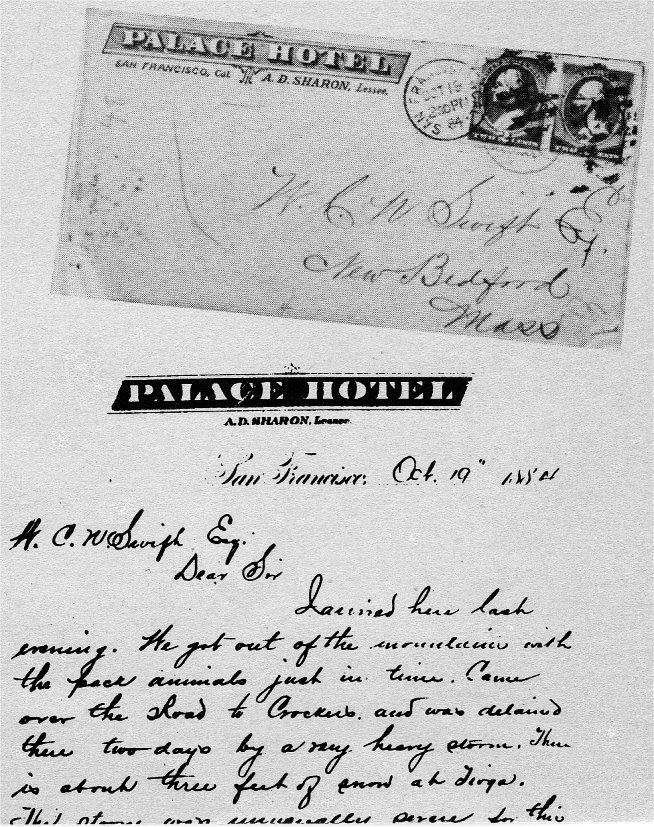 PALACE HOTEL
SAN FRANCISCO, Cal. A. D. SHARON, Lessee.
SAN FRAN
OCT 19
230PM
84
W. C. N. Swift Esq.
New Bedford
Mass
PALACE HOTEL
A. D. SHARON, Lessee.
San Francisco, Oct. 19" 1884
W. C. N. Swift Esq.
Dear Sir
I arrived here last
evening. We got out of the mountains with
the pack animals just in time. Came
over the Road to Crockers. and was detained
there two days by a very heavy storm. There
is about three feet of snow at Tioga.
This storm was unusually severe for this